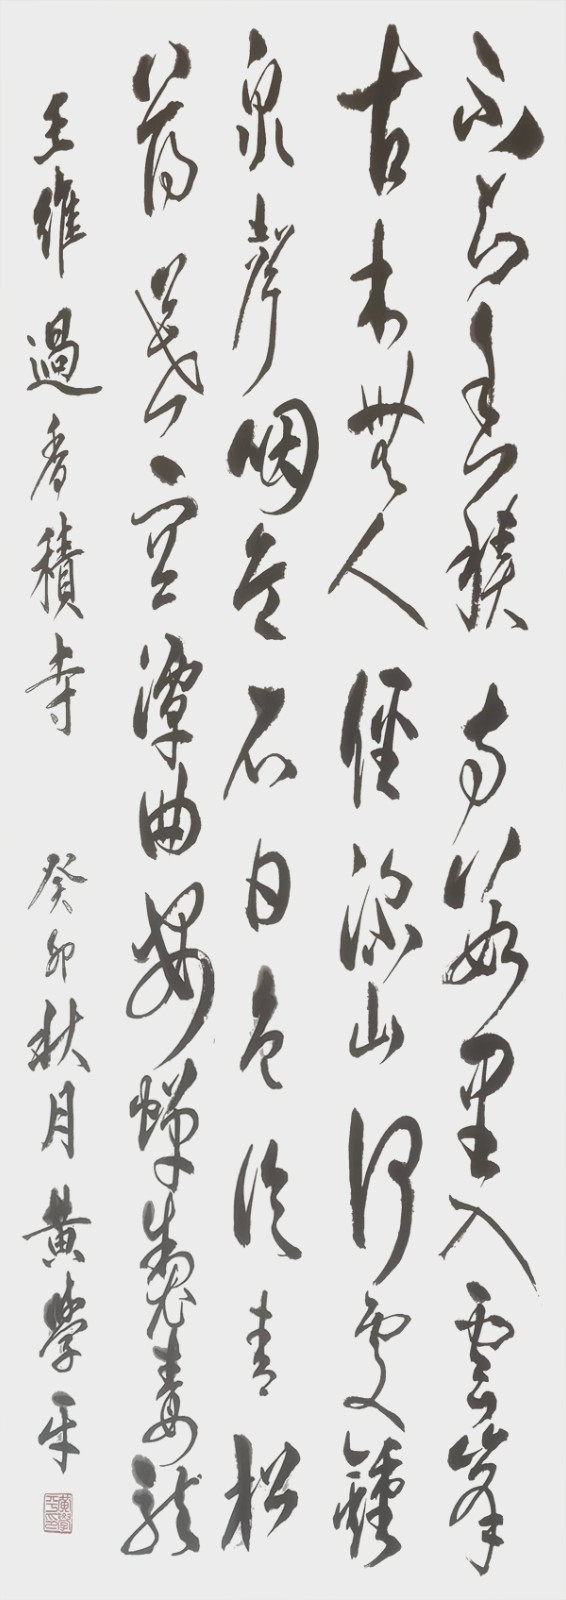 不知香積寺數里入雲峯
古木無人徑深山何處鐘
泉聲咽危石日色冷青松
薄暮空潭曲安禪製毒龍
王維過香積寺 癸卯秋月黄學平
黄學平印